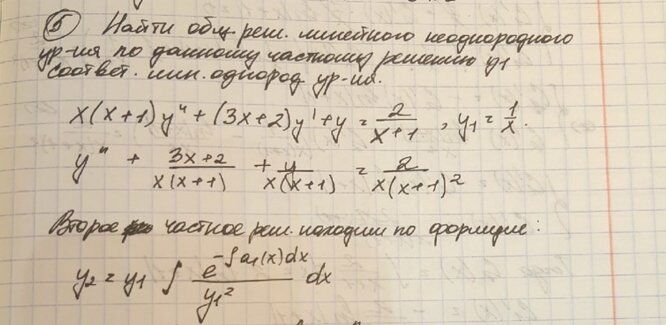 ⑤ Найти общ. реш. линейного неоднородного
ур-ия по данному частному решению y₁
соответ. лин. однород. ур-ия.
x(x+1)y" + (3x+2)y' + y = 2/(x+1), y₁ = 1/x.
y" + (3x+2)/(x(x+1)) + y/(x(x+1)) = 2/(x(x+1)²)
Второе частное реш. находим по формуле:
y₂ = y₁ ∫ e^(-∫a₁(x)dx)/y₁² dx